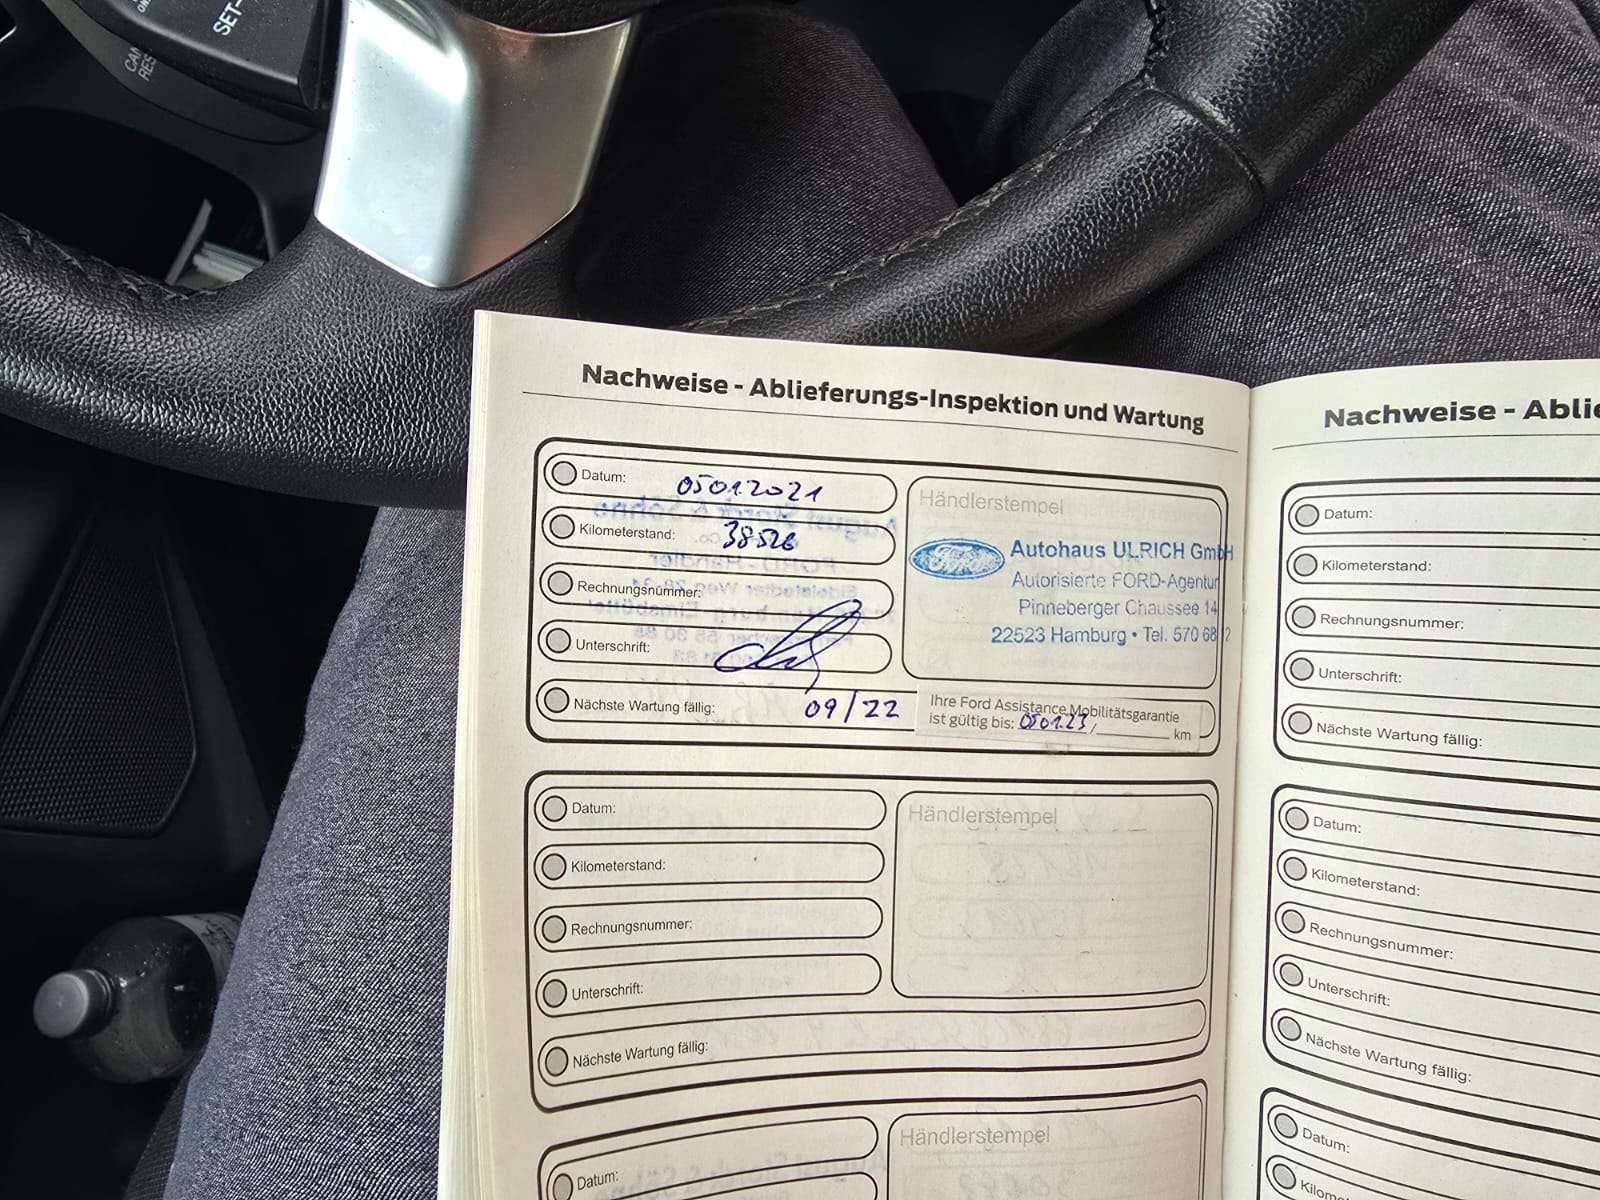 SET-
CAN
RES
Nachweise - Ablieferungs-Inspektion und Wartung
Datum: 05012021
Kilometerstand: 38526
Rechnungsnummer:
Unterschrift:
Nächste Wartung fällig: 09/22
Händlerstempel
Ford
Autohaus ULRICH GmbH
Autorisierte FORD-Agentur
Pinneberger Chaussee 14
22523 Hamburg • Tel. 570 68 2
Ihre Ford Assistance Mobilitätsgarantie
ist gültig bis: 050123/ km
Datum:
Kilometerstand:
Rechnungsnummer:
Unterschrift:
Nächste Wartung fällig:
Händlerstempel
Datum:
Händlerstempel
Nachweise - Ablie
Datum:
Kilometerstand:
Rechnungsnummer:
Unterschrift:
Nächste Wartung fällig:
Datum:
Kilometerstand:
Rechnungsnummer:
Unterschrift:
Nächste Wartung fällig:
Datum:
Kilome